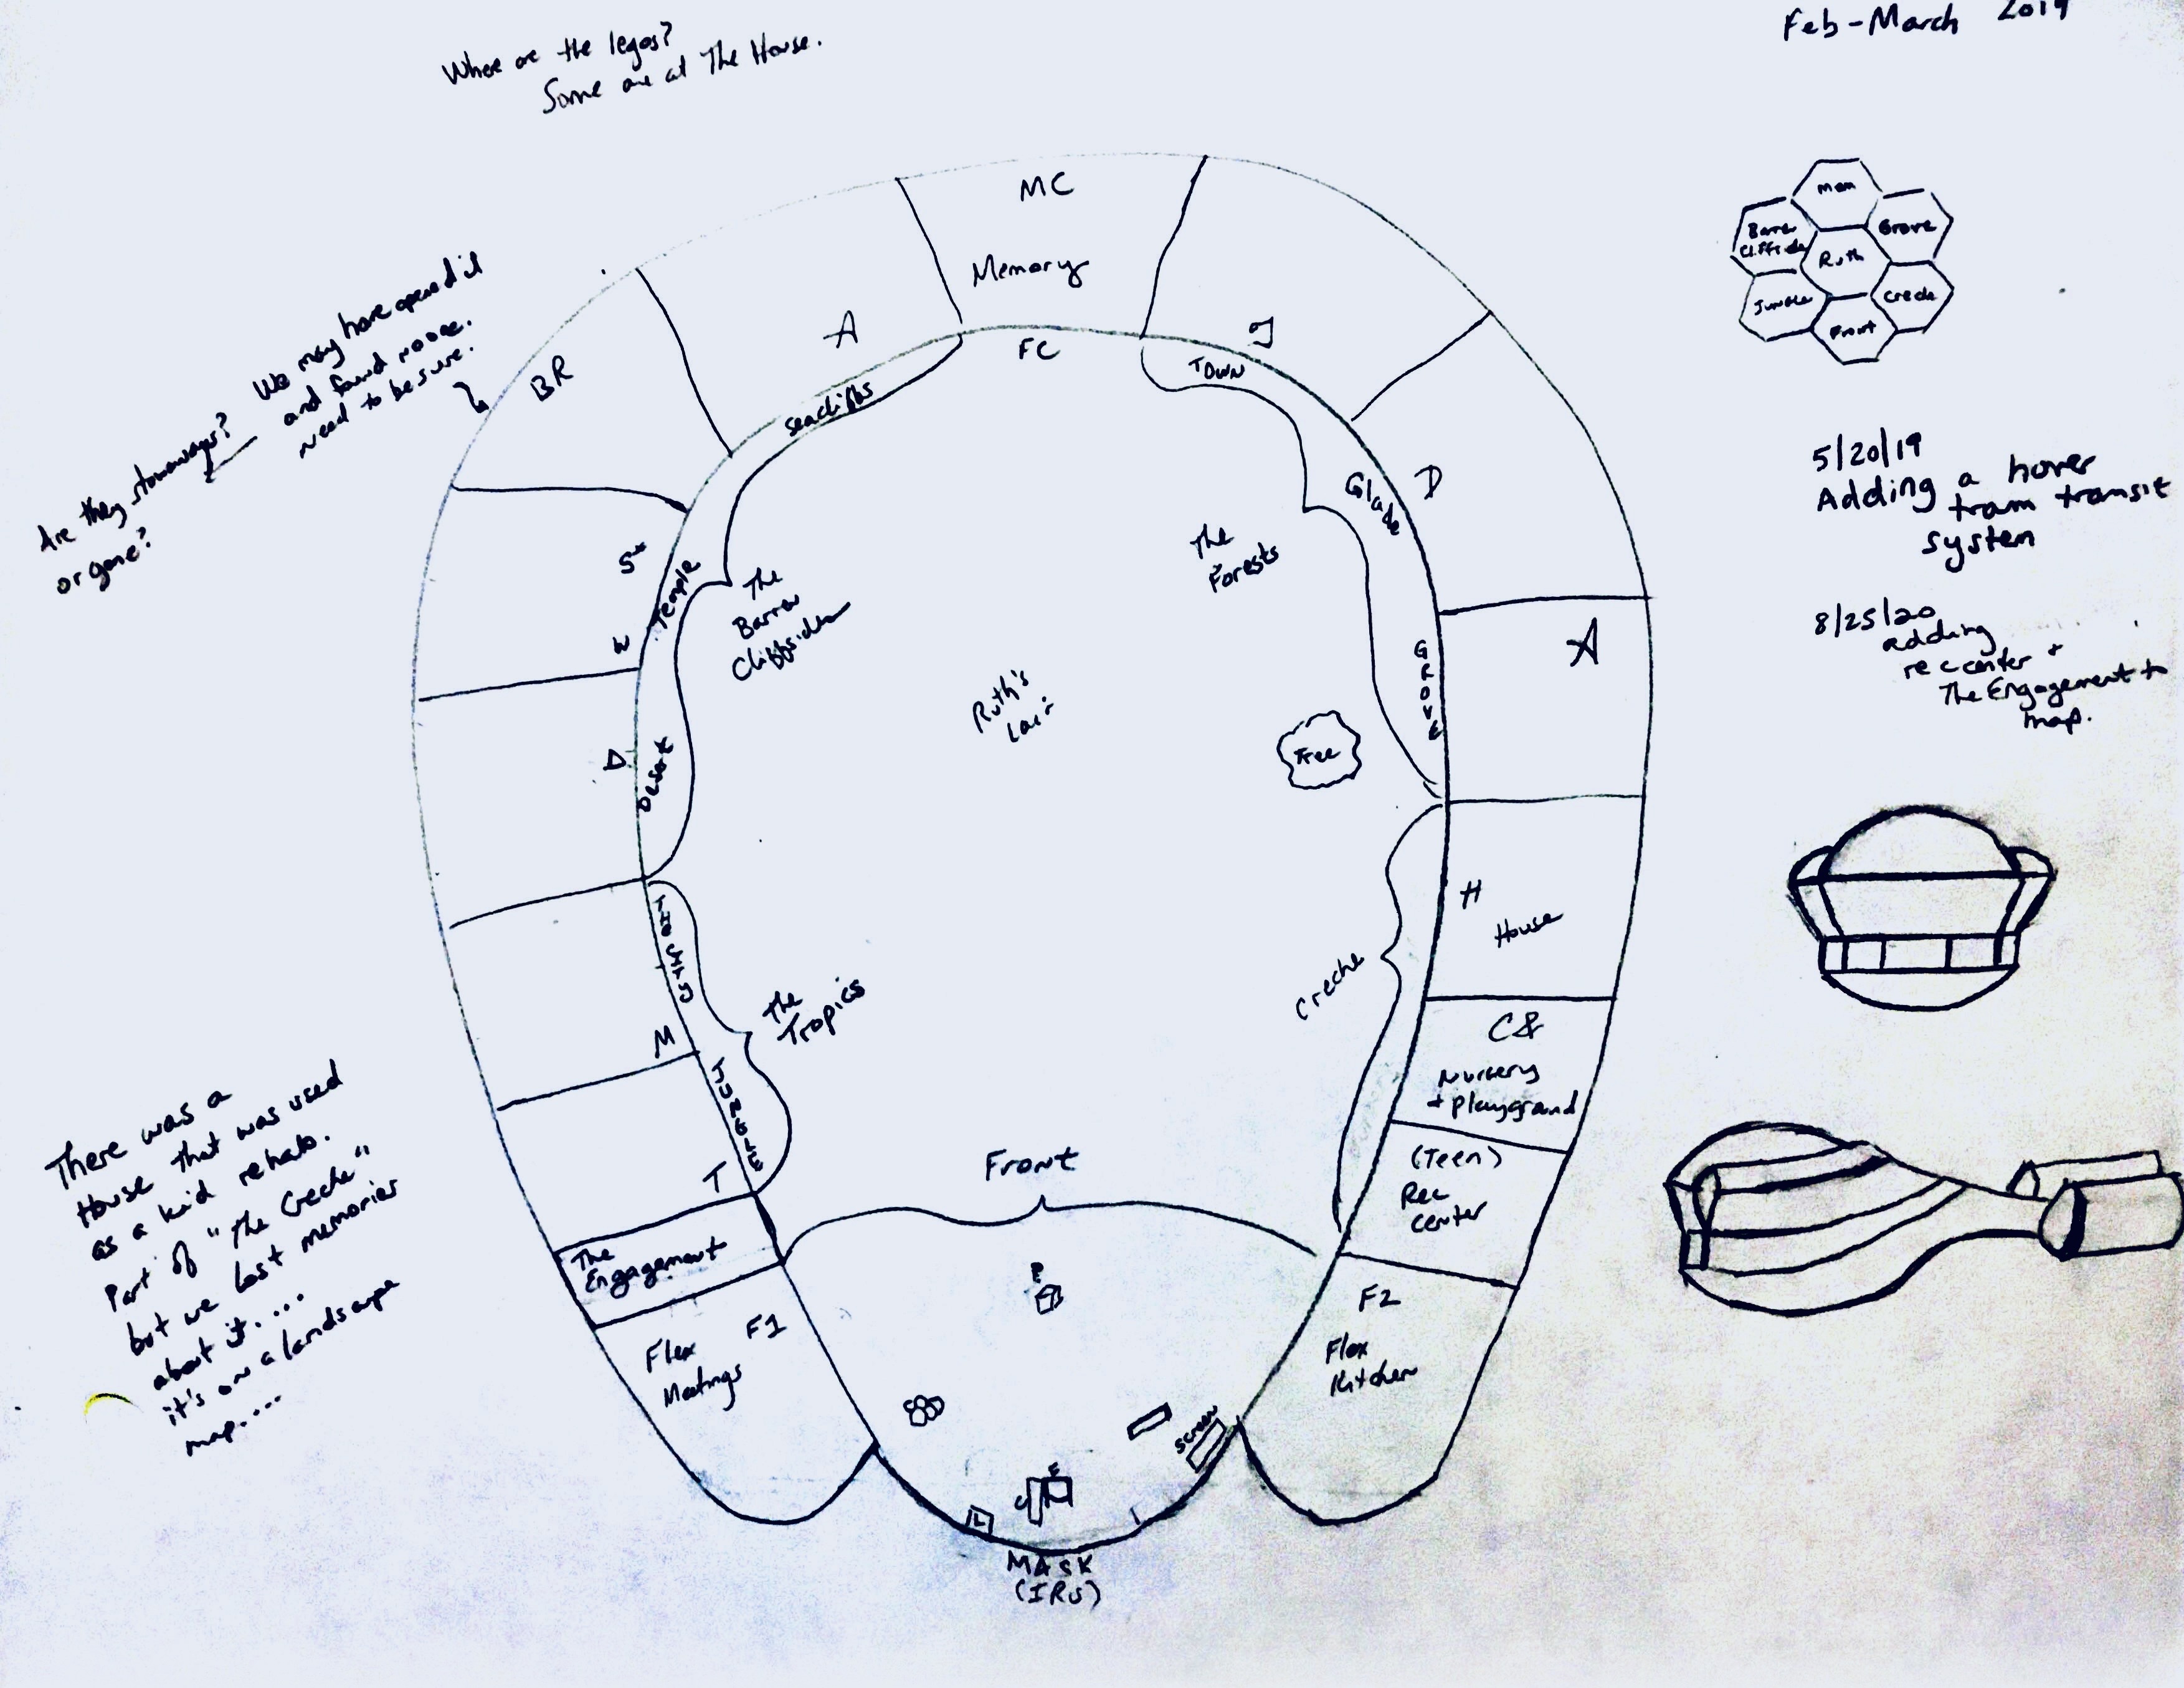 Feb-March 2019
Where are the legos?
Some are at The House.
MC
Memory
FC
A
seacliffs
BR
We may have opened it
and found no one.
need to be sure.
Are they stowaways?
or gone?
J
TOWN
D
Glade
The
Forests
A
GROVE
Tree
S
Temple
W
The
Barren
Cliffsides
Ruth's
Lair
D
Desert
M
The
Tropics
JUNGLE
T
H
House
Creche
C&
Nursery
+ playground
(Teen)
Rec
center
Front
The
Engagement
F1
Flex
Meetings
F2
Flex
Kitchen
P
screen
E
L
MASK
(IRU)
There was a
House that was used
as a kid rehab.
Part of "The Creche"
but we lost memories
about it....
it's on a landscape
map....
Mem
Barren
Cliffside
Grove
Ruth
Jungle
Creche
Front
5/20/19
Adding a hover
tram transit
system
8/25/20
adding
rec center +
The Engagement to
map.